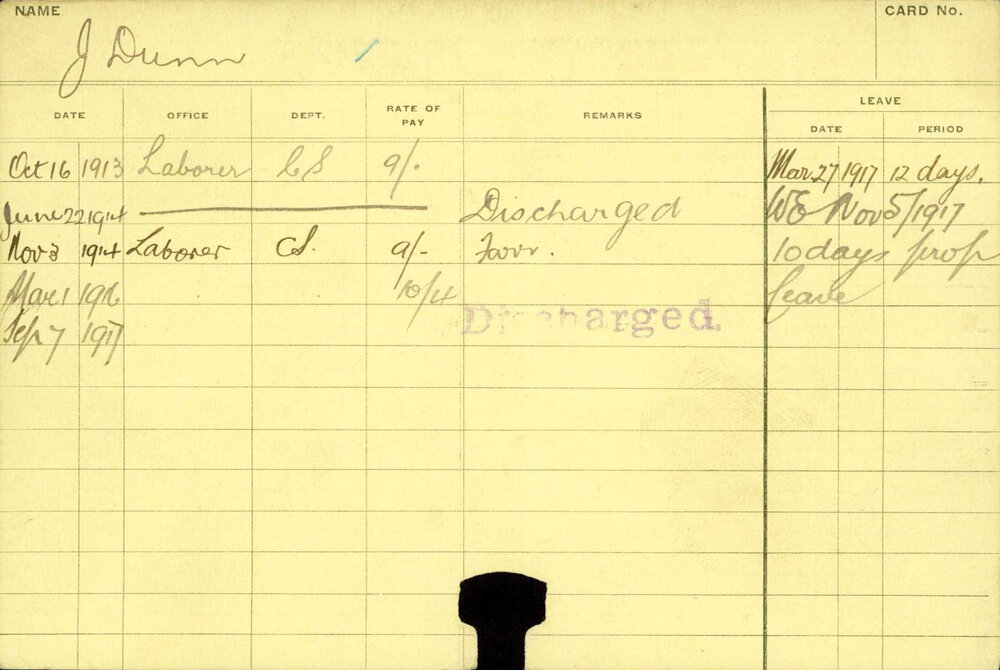 NAME CARD No.
J Dunn
LEAVE
DATE OFFICE DEPT. RATE OF PAY REMARKS DATE PERIOD
Oct 16 1913 Laborer CS 9/- Mar 27 1917 12 days.
June 22 1914 Discharged WE Nov 5/1917
Nov 3 1914 Laborer CS. 9/- 10 days prop
Mar 1 1916 10/4 leave
Sep 7 1917 Discharged.